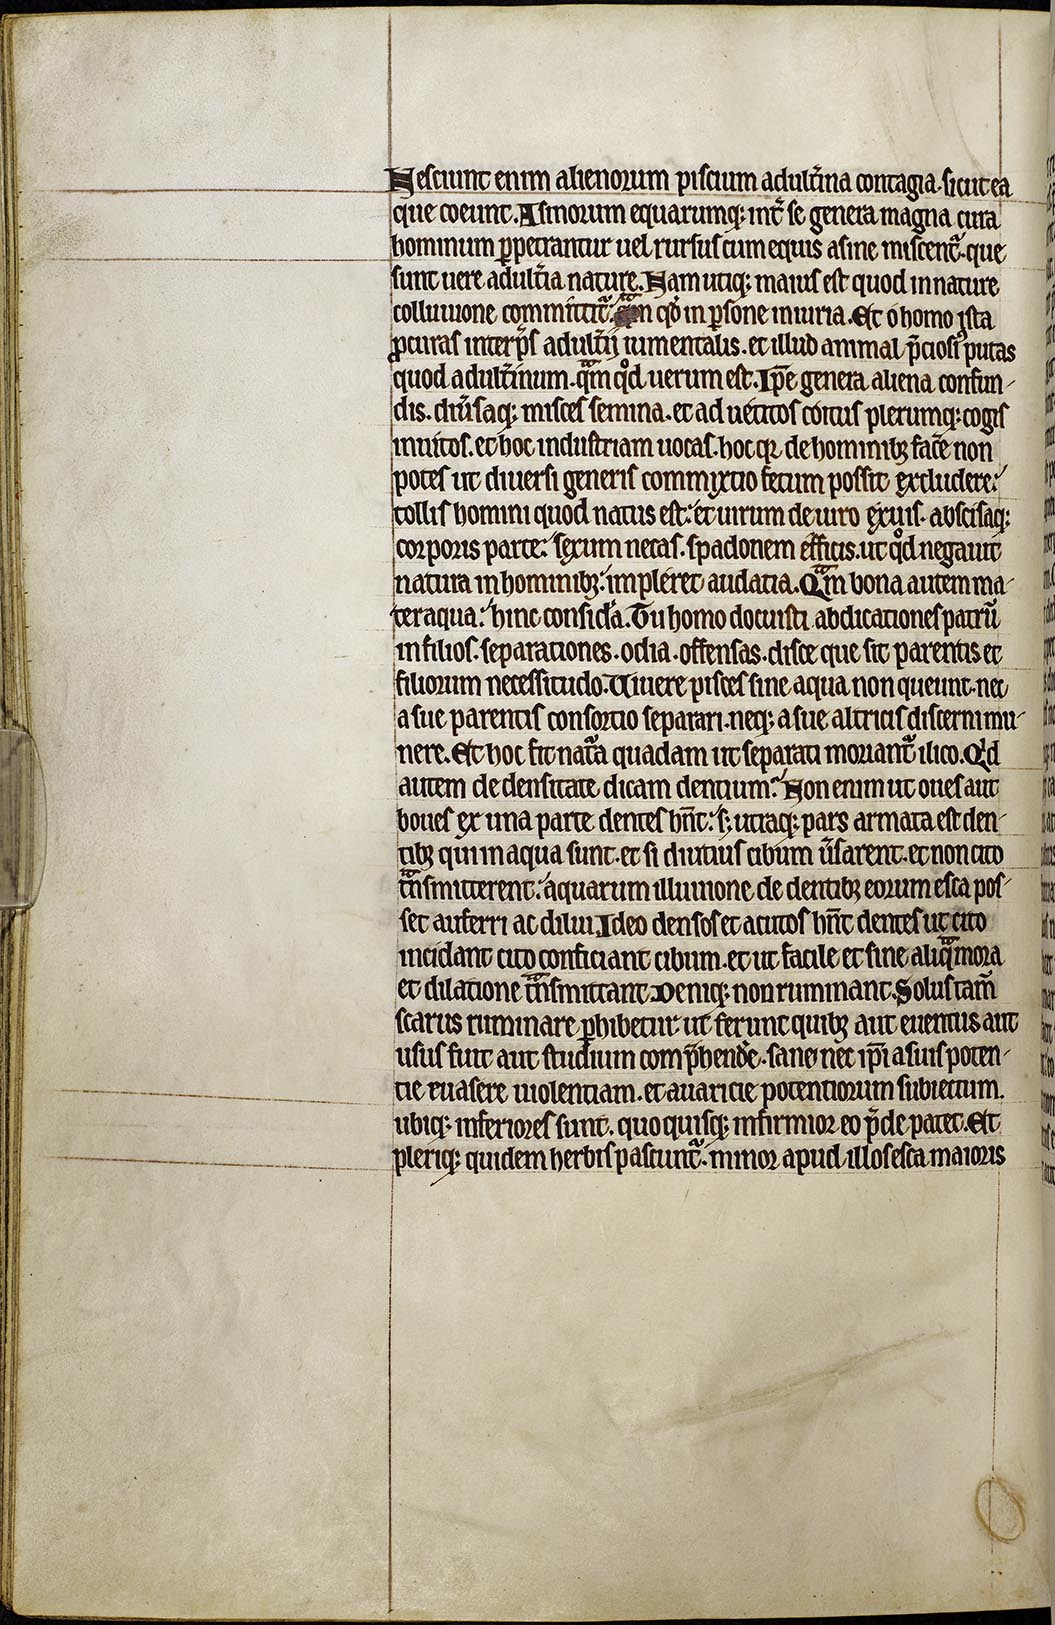 Nesciunt enim alienorum piscium adult̾ina contagia. sicut ea
que coeunt. Asinorum equarumq; int̾ se genera magna cura
hominum ꝑpetrantur uel rursus cum equis asine miscent᷑. que
sunt uere adult̾ia nature. Nam utiq; maius est quod in nature
colluuione committit᷑. qᵃm qͦd in ꝑsone iniuria. Et o homo ista
ꝓcuras interp̄s adult̾ij iumentalis. et illud animal p̄ciosiꝰ putas
quod adult̾inum. qᵃm qͦd uerum est. Ip̄e genera aliena confun-
dis. diu̾saq; misces semina. et ad uetitos coitus plerumq; cogis
inuitos. et hoc industriam uocas. hoc qꝛ de hominibꝫ fac̾e non
potes ut diuersi generis commixtio fetum possit excludere;
tollis homini quod natus est; et uirum de uiro exuis. abscisaq;
corporis parte; sexum necas. spadonem efficis. ut qͦd negauit
natura in hominibꝫ; impleret audacia. Qᵃm bona autem ma-
ter aqua; hinc consid̾a. Tu homo docuisti abdicationes patrū
in filios. separationes. odia. offensas. disce que sit parentis et
filiorum necessitudo. Uiuere pisces sine aqua non queunt. nec
a sue parentis consortio separari. neq; a sue altricis discerni mu-
nere. Et hoc fit nat᷑a quadam ut separati moriant᷑ ilico. Qͥd
autem de densitate dicam dentium; Non enim ut oues aut
boues ex una parte dentes hn̄t; s; utraq; pars armata est den-
tibꝫ qui in aqua sunt. et si diutius cibum u̾sarent. et non cito
tᵃnsmitterent; aquarum illuuione de dentibꝫ eorum esca pos-
set auferri ac dilui. Ideo densos et acutos hn̄t dentes ut cito
incidant cito conficiant cibum. et ut facile et sine aliqᵃ mora
et dilatione tᵃnsmittant. Deniq; non ruminant. Solus tam̄
scarus ruminare ꝑhibetur ut ferunt quibꝫ aut euentus aut
usus fuit aut studium comp̄hend̾e. sane nec ip̄i a suis poten-
tie euasere uiolentiam. et auaricie potentiorum subiectum.
ubiq; inferiores sunt. quo quisq; infirmior eo p̄de patet. Et
pleriq; quidem herbis pascunt᷑. minor apud illos esca maioris